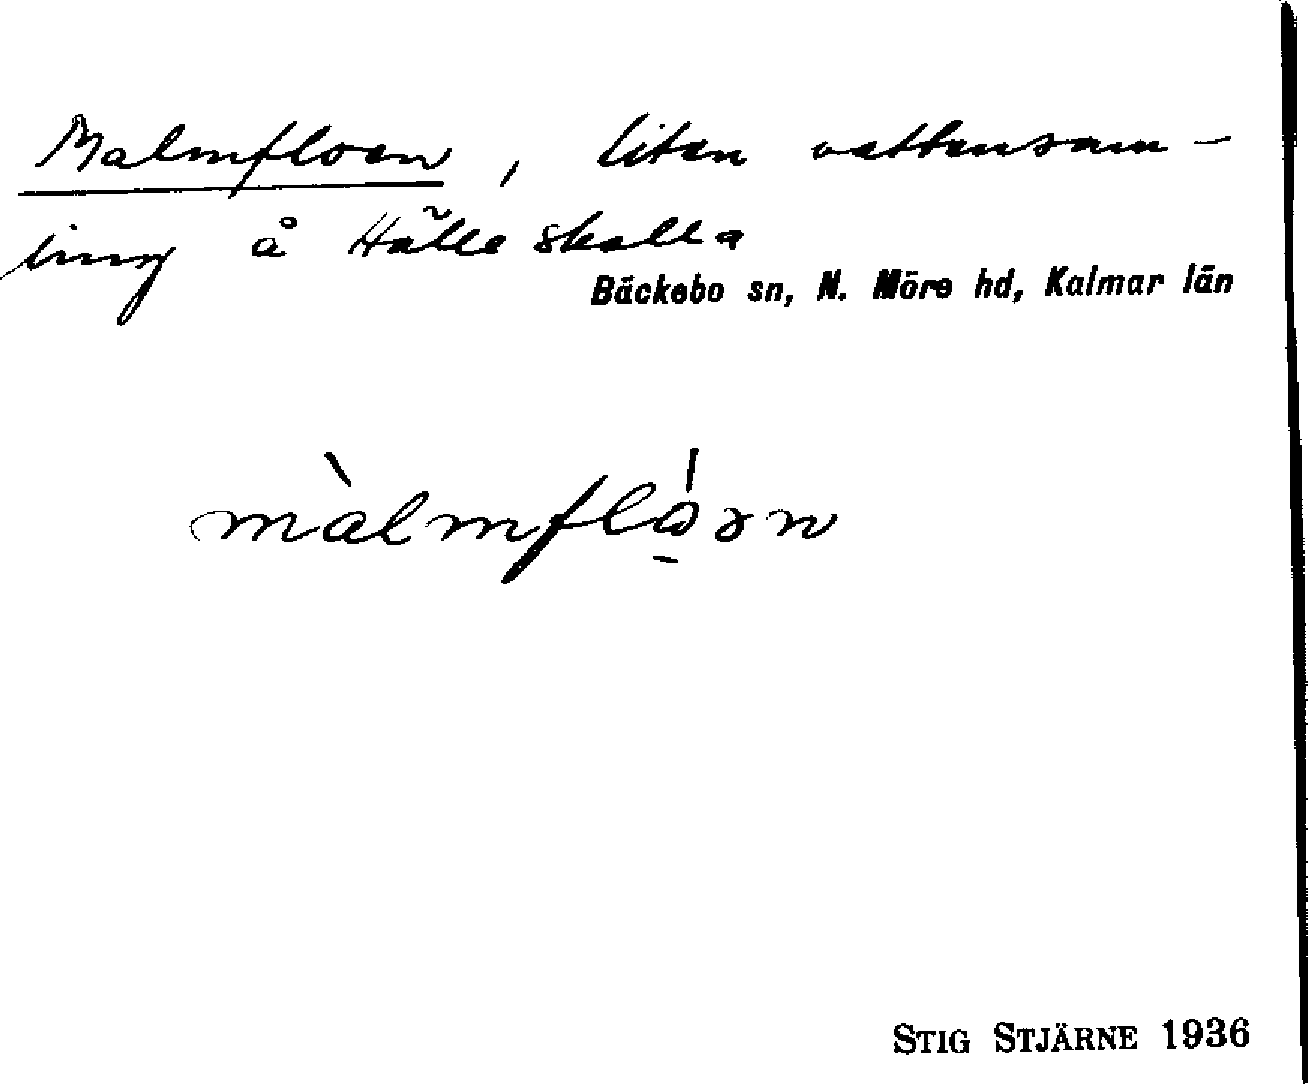 Malmfloen, liten vattensam-
ling å Hälleskalla
Bäckebo sn, N. Möre hd, Kalmar län
STIG STJÄRNE 1936